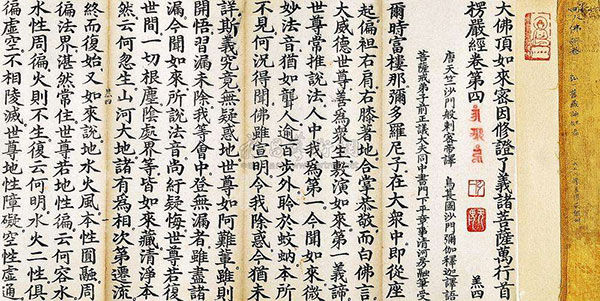 大佛頂如來密因修證了義諸菩薩萬行首
楞嚴經卷第四 羔四
唐天竺沙門般剌密帝譯 烏萇國沙門彌伽釋迦譯語
菩薩戒弟子前正議大夫同中書門下平章事清河房融筆受
爾時富樓那彌多羅尼子在大眾中即從座
起偏袒右肩右膝著地合掌恭敬而白佛言
大威德世尊善為眾生敷演如來第一義諦
世尊常推說法人中我為第一今聞如來微
妙法音猶如聾人逾百步外聆於蚊蚋本所
不見何況得聞佛雖宣明令我除惑今猶未
詳斯義究竟無疑惑地世尊如阿難輩雖則
開悟習漏未除我等會中登無漏者雖盡諸
漏今聞如來所說法音尚紆疑悔世尊若復
世間一切根塵陰處界等皆如來藏清淨本
然云何忽生山河大地諸有為相次第遷流
羔四
終而復始又如來說地水火風本性圓融周
徧法界湛然常住世尊若地性徧云何容水
水性周徧火則不生復云何明水火二性俱
徧虛空不相陵滅世尊地性障礙空性虛通